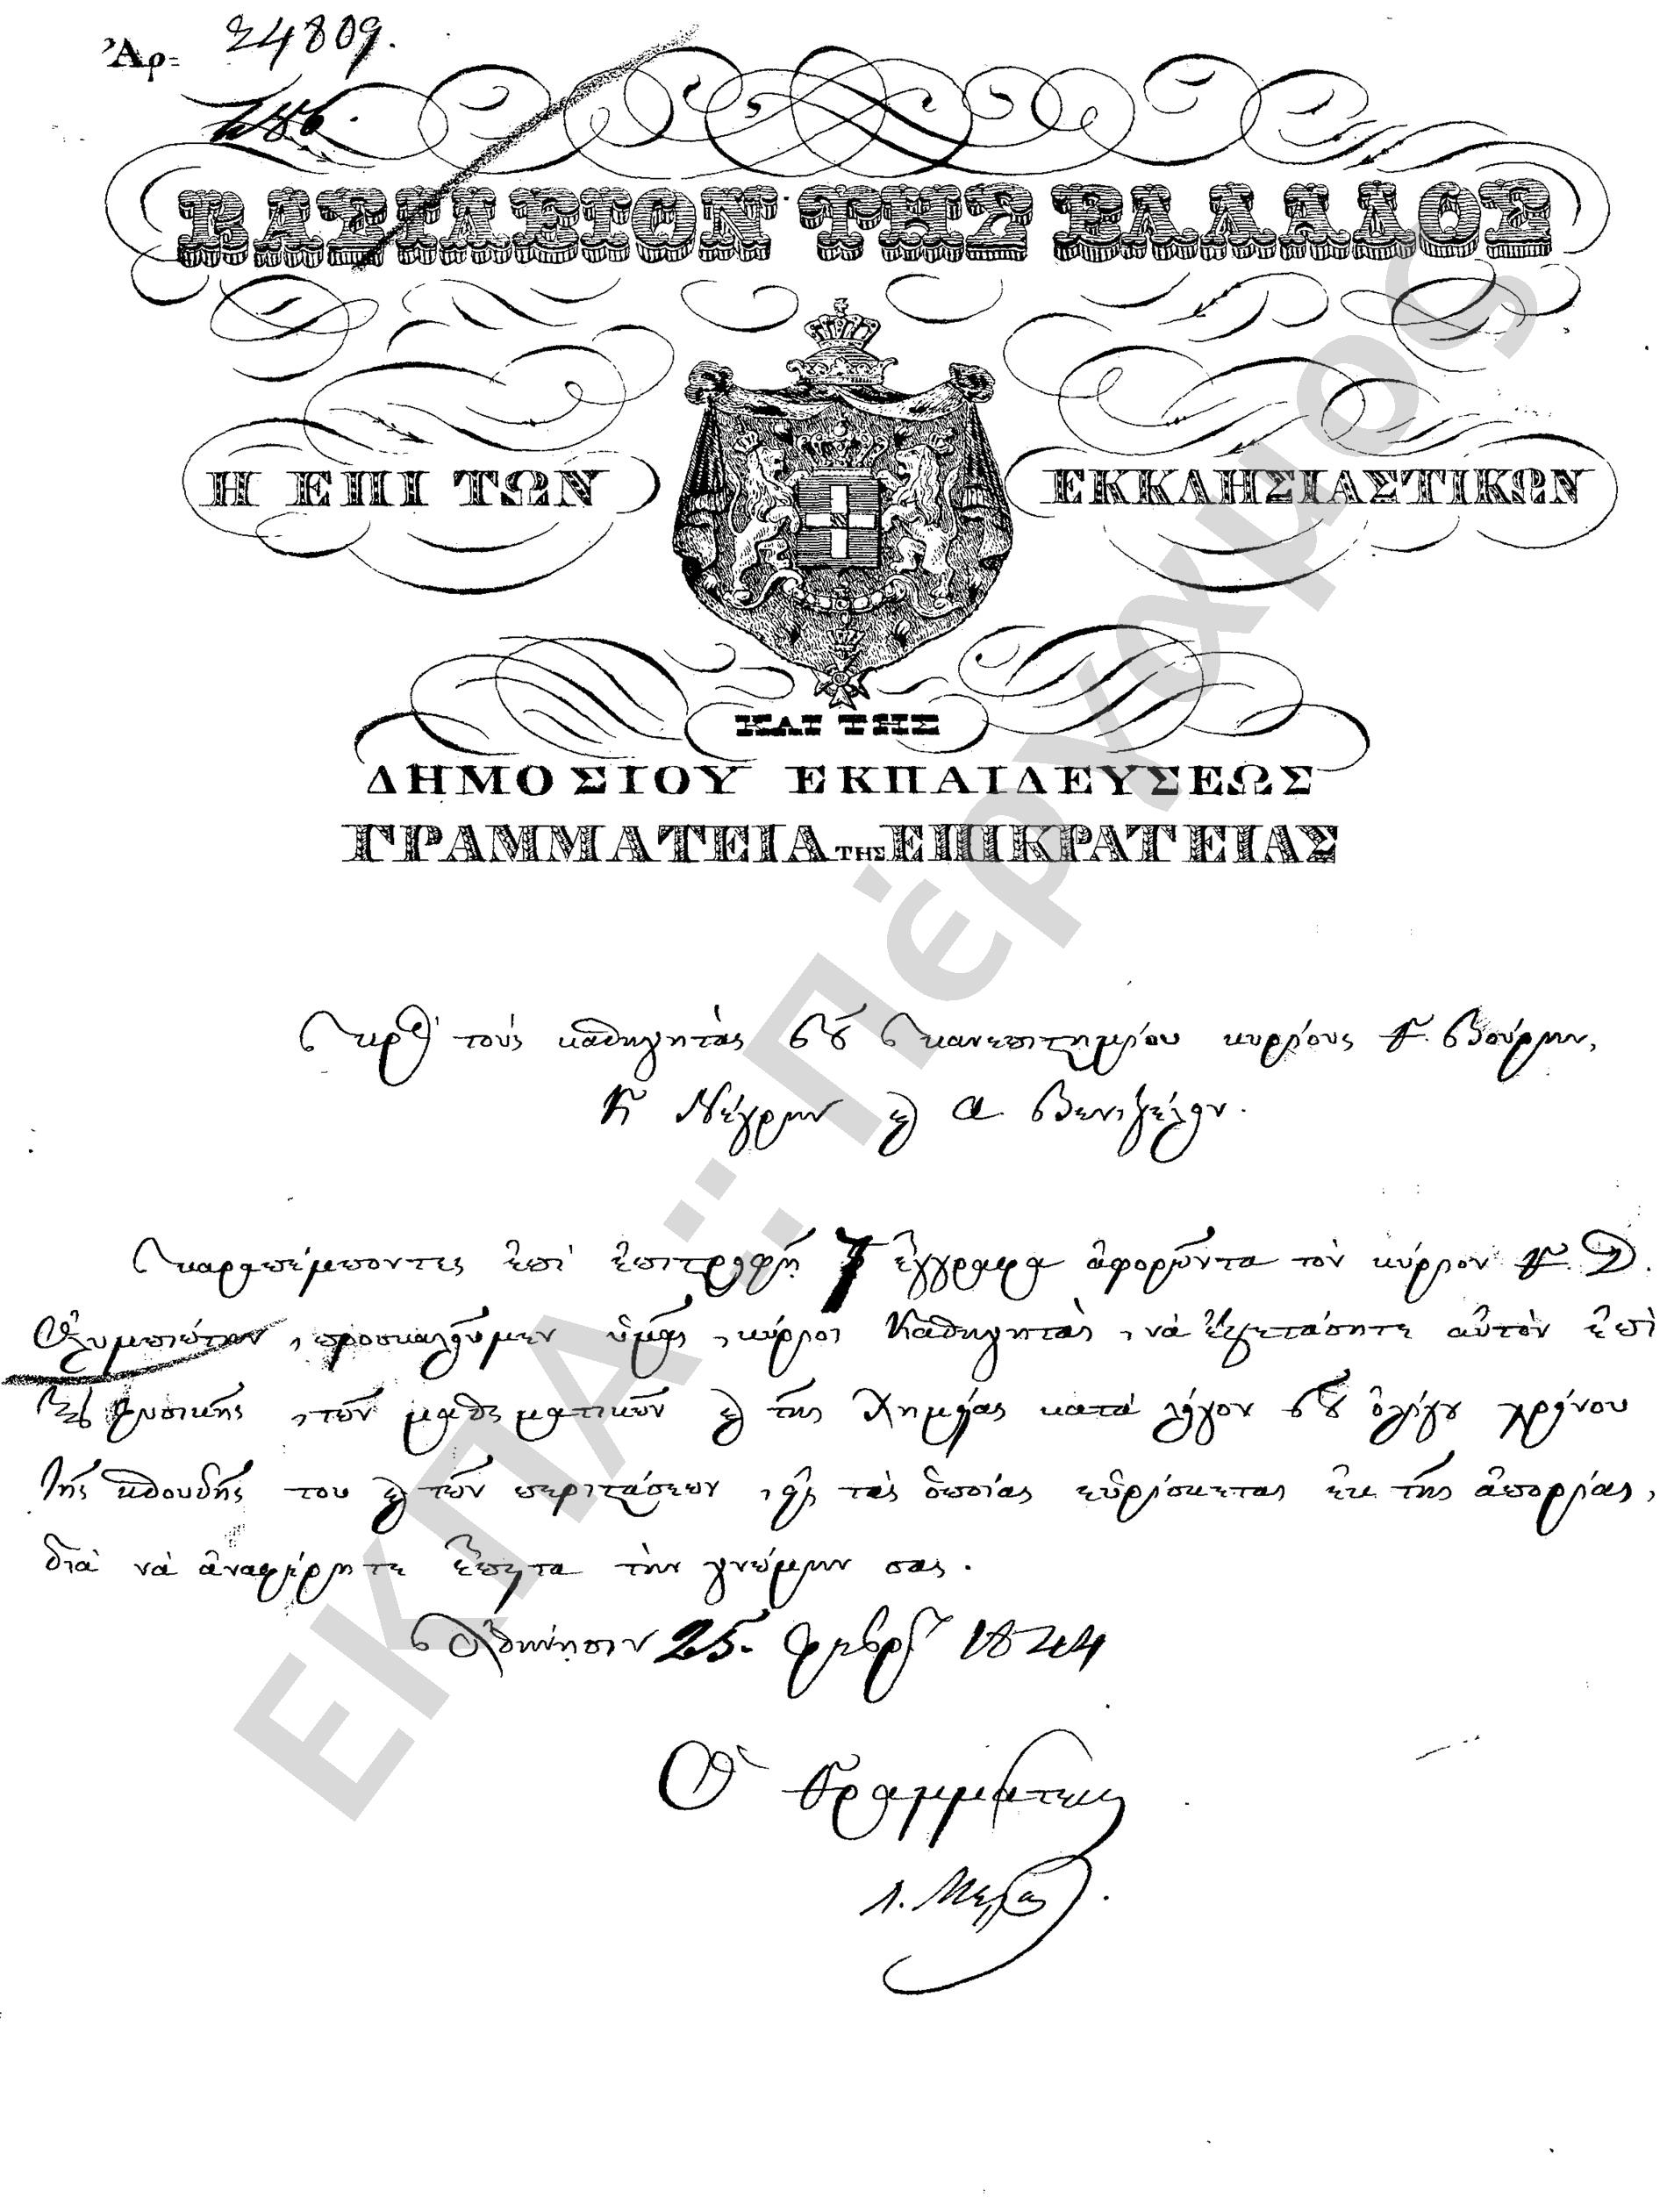 Ἀρ= 24809.
ΒΑΣΙΛΕΙΟΝ ΤΗΣ ΕΛΛΑΔΟΣ
Η ΕΠΙ ΤΩΝ ΕΚΚΛΗΣΙΑΣΤΙΚΩΝ
ΚΑΙ ΤΗΣ
ΔΗΜΟΣΙΟΥ ΕΚΠΑΙΔΕΥΣΕΩΣ
ΓΡΑΜΜΑΤΕΙΑ ΤΗΣ ΕΠΙΚΡΑΤΕΙΑΣ
Πρὸς τοὺς καθηγητὰς τοῦ Πανεπιστημίου κυρίους Γ. Βούρην,
Κ Νέγρην καὶ Α. Βενιζέλον.
Παραπέμποντες ἐπὶ ἐπιστροφῇ 7 ἔγγραφα ἀφορῶντα τὸν κύριον Γ. Δ.
Ὀλυμπιώτην, προσκαλοῦμεν ὑμᾶς, κύριοι Καθηγηταὶ, νὰ ἐξετάσητε αὐτὸν ἐπὶ
τῆς Φυσικῆς, τῶν μαθεματικῶν καὶ τῆς Χημείας κατὰ λόγον τοῦ ὀλίγου χρόνου
τῆς σπουδῆς του καὶ τῶν περιστάσεων, εἰς τὰς ὁποίας εὑρίσκεται ἐκ τῆς ἀπορίας,
διὰ νὰ ἀναφέρητε ἔπειτα τὴν γνώμην σας.
Ἀθήνησιν 25. 1844
Ὁ Γραμματεὺς
Λ. Μελᾶς.
ΕΚΠΑ :: Πέργαμος